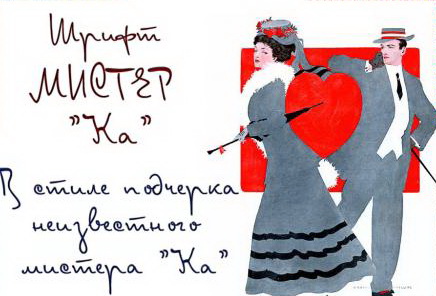 Шрифт
МИСТЕР
"Ка"
В стиле подчерка
неизвестного
мистера "Ка"